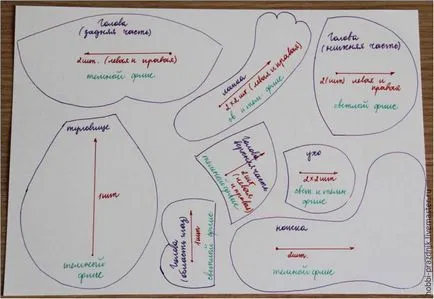 Голова
(задняя часть)
2 шт. (левая и правая)
темной флис
лапка
2х2 шт (левая и правая)
св и темн. флис
Голова
(нижняя часть)
2 (шт) левая и
правая
светлой флис
туловище
1 шт
темный
флис
Голова
верхняя часть
2 шт
(левая
и правая)
темной флис
ухо
2х2 шт
свет и темн.
флис
Голова
(область глаз)
1 шт
светлой флис
ножка
2 шт.
темной флис